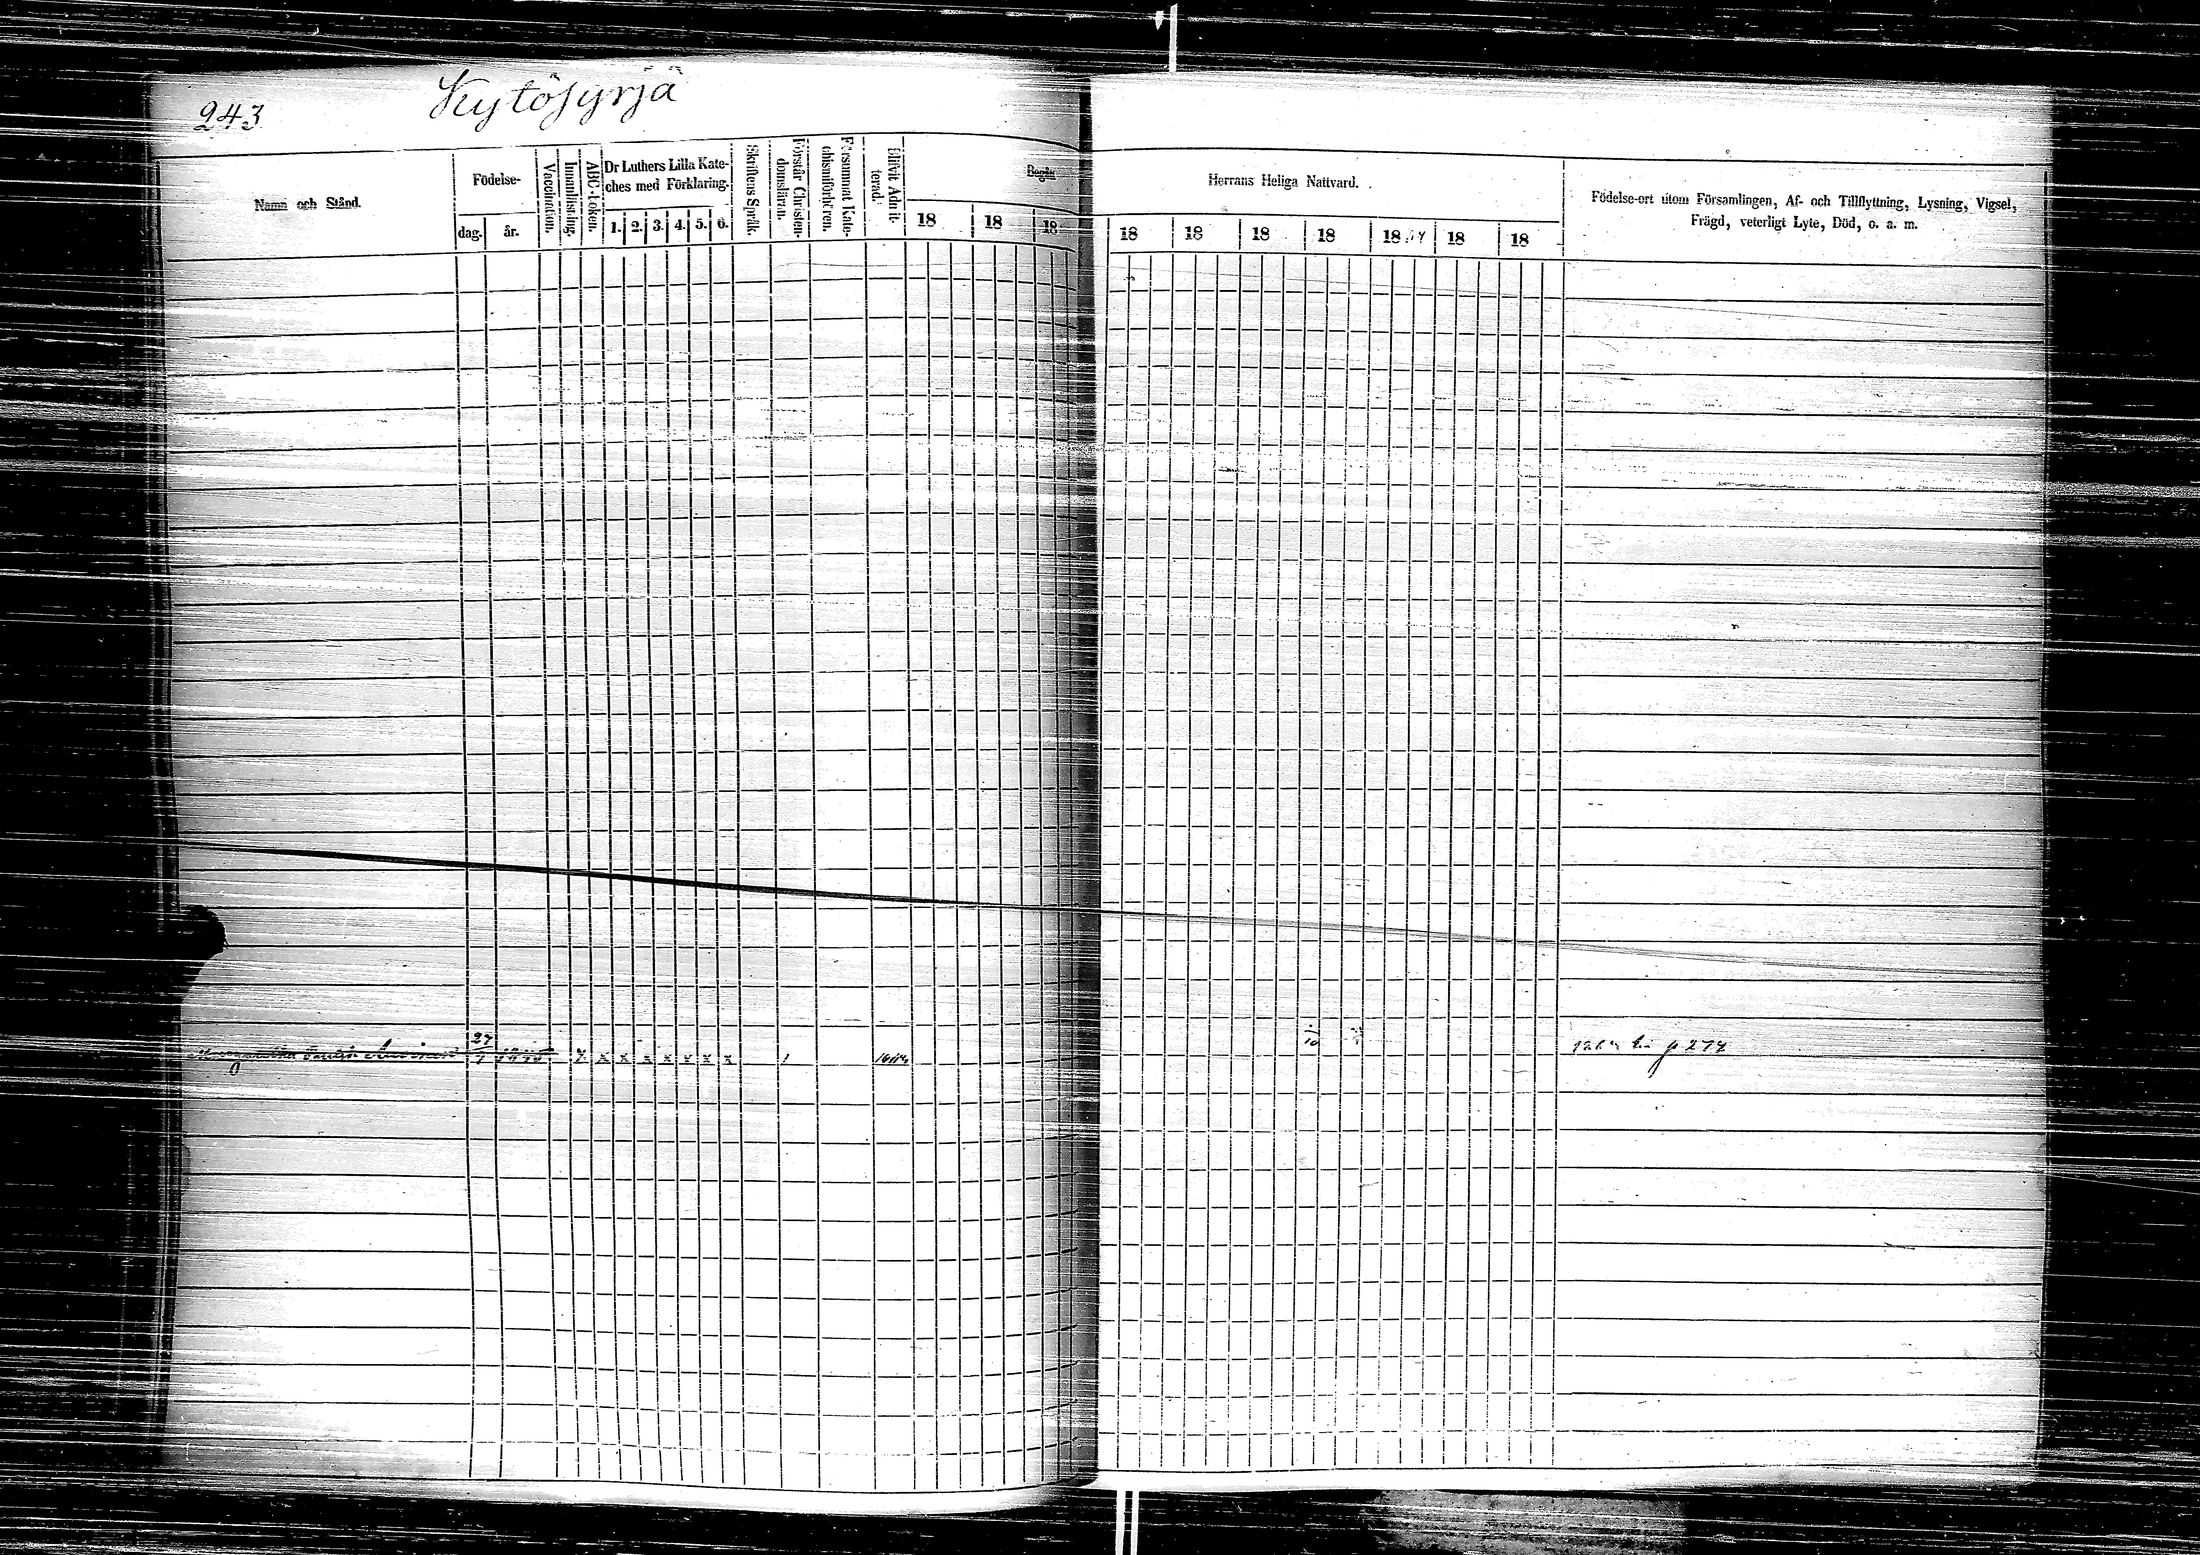 243 Kytösyrjä
Namn och Stånd.
Födelse-
dag. år.
Vaccination.
Innanläsning.
ABC-boken.
Dr Luthers Lilla Kate-
ches med Förklaring.
1. 2. 3. 4. 5. 6.
Skriftens Språk.
Förstår Christen-
domsläran.
Försummat Kate-
chismiförhören.
Blifvit Admit-
terad.
Begått Herrans Heliga Nattvard.
18 18 18 18 18 18 18 18 18 18
Födelse-ort utom Församlingen, Af- och Tillflyttning, Lysning, Vigsel,
Frägd, veterligt Lyte, Död, o. a. m.
27 x x x x x x x 1 p 274